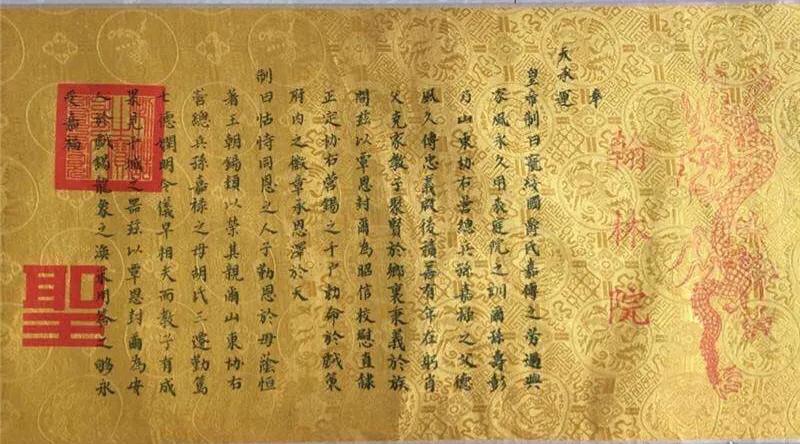 翰林院
奉
天承運
皇帝制曰寵綏國爵氏嘉傅之勞適興
家風永久用表庭院之訓爾孫壽彭
乃山東協右營總兵孫嘉祿之父德
風久傳忠義啟後積善有年在躬肯
父克家教子聚賢於鄉裏秉義於族
間茲以覃恩封爾為昭信校慰直隸
正定協右營錫之千戶勅命於戲策
府內之徽章承恩澤於天
制曰怙恃同恩之人子勤恩於毋蔭恒
著王朝錫類以榮其親爾山東協右
營總兵孫嘉祿之母胡氏三遷勤篤
七德嫻明令儀早相夫而教子有成
果見干城之器茲以覃恩封爾為安
人於戲錫龍象之渙采用答之劬永
受嘉福
聖